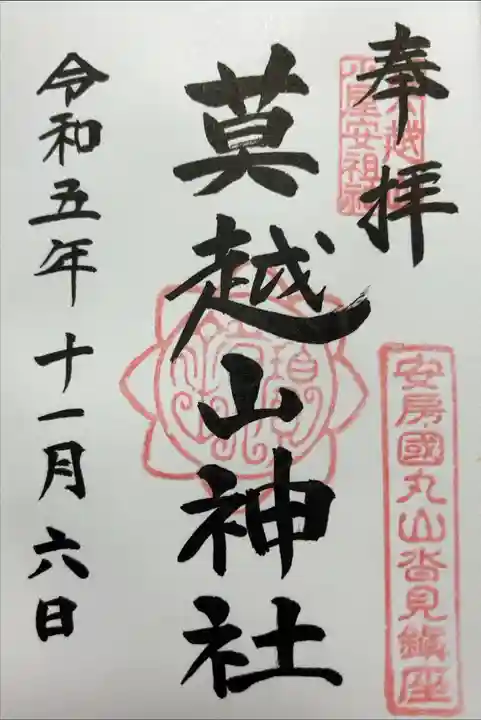 奉拝
安房國丸山沓見鎮座
莫越山神社
令和五年十一月六日